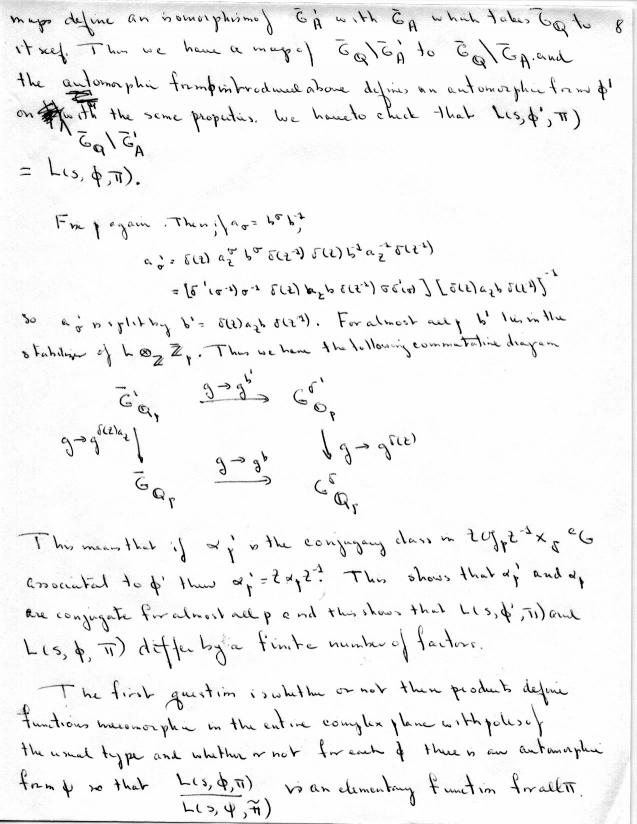 maps define an isomorphism of G̅'_A with G̅_A which takes G̅_Q to 8
itself. Thus we have a map of G̅_Q\G̅'_A to G̅_Q\G̅_A and
the automorphic form φ introduced above defines an automorphic form φ'
on with the same properties. We have to check that L(s, φ', π)
G̅_Q\G̅'_A
= L(s, φ, π).
Fix p again. Then, if a_σ = b^σ b^{-1},
a'_σ = δ(z) a_z^σ b^σ δ(z^{-1}) δ(z) b^{-1} a_z^{-1} δ(z^{-1})
= [δ'(σ^{-1}) σ^{-1} δ(z) a_z b δ(z^{-1}) σ δ'(σ)] [δ(z) a_z b δ(z^{-1})]^{-1}
so a'_σ is split by b' = δ(z) a_z b δ(z^{-1}). For almost all p b' lies in the
stabilizer of L ⊗_Z Z_p. Thus we have the following commutative diagram
G̅'_{Q_p} g → g^{b'} G^{δ'}_{Q_p}
g → g^{δ(z)a_z} ↓ ↓ g → g^{δ(z)}
G̅_{Q_p} g → g^b G^δ_{Q_p}
This means that if α'_p is the conjugacy class in
associated to φ' then α'_p = z α_p z^{-1}. This shows that α'_p and α_p
are conjugate for almost all p and this shows that L(s, φ', π) and
L(s, φ, π) differ by a finite number of factors.
The first question is whether or not these products define
functions meromorphic in the entire complex plane with poles of
the usual type and whether or not for each φ there is an automorphic
form ψ so that L(s, φ, π) / L(s, ψ, π̃) is an elementary function for all π.